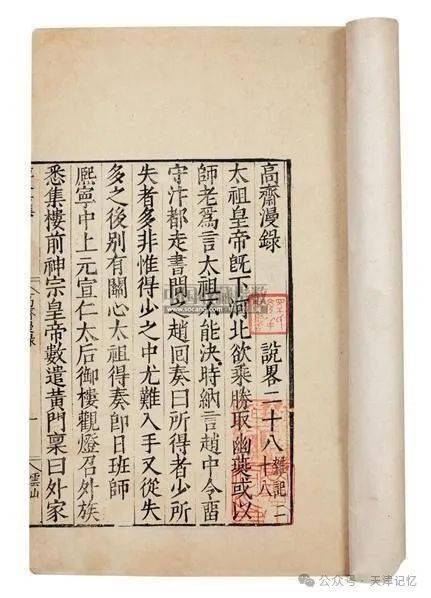 高齋漫錄 說畧二十八 雜記二十八
太祖皇帝旣下河北欲乘勝取幽燕或以
師老爲言太祖不能決時納言趙中令畱
守汴都走書問之趙回奏曰所得者少所
失者多非惟得少之中尤難入手又從失
多之後別有關心太祖得奏卽日班師
熈寧中上元宣仁太后御樓觀燈召外族
悉集樓前神宗皇帝數遣黃門稟曰外家
一
雲山
公众号·天津记忆